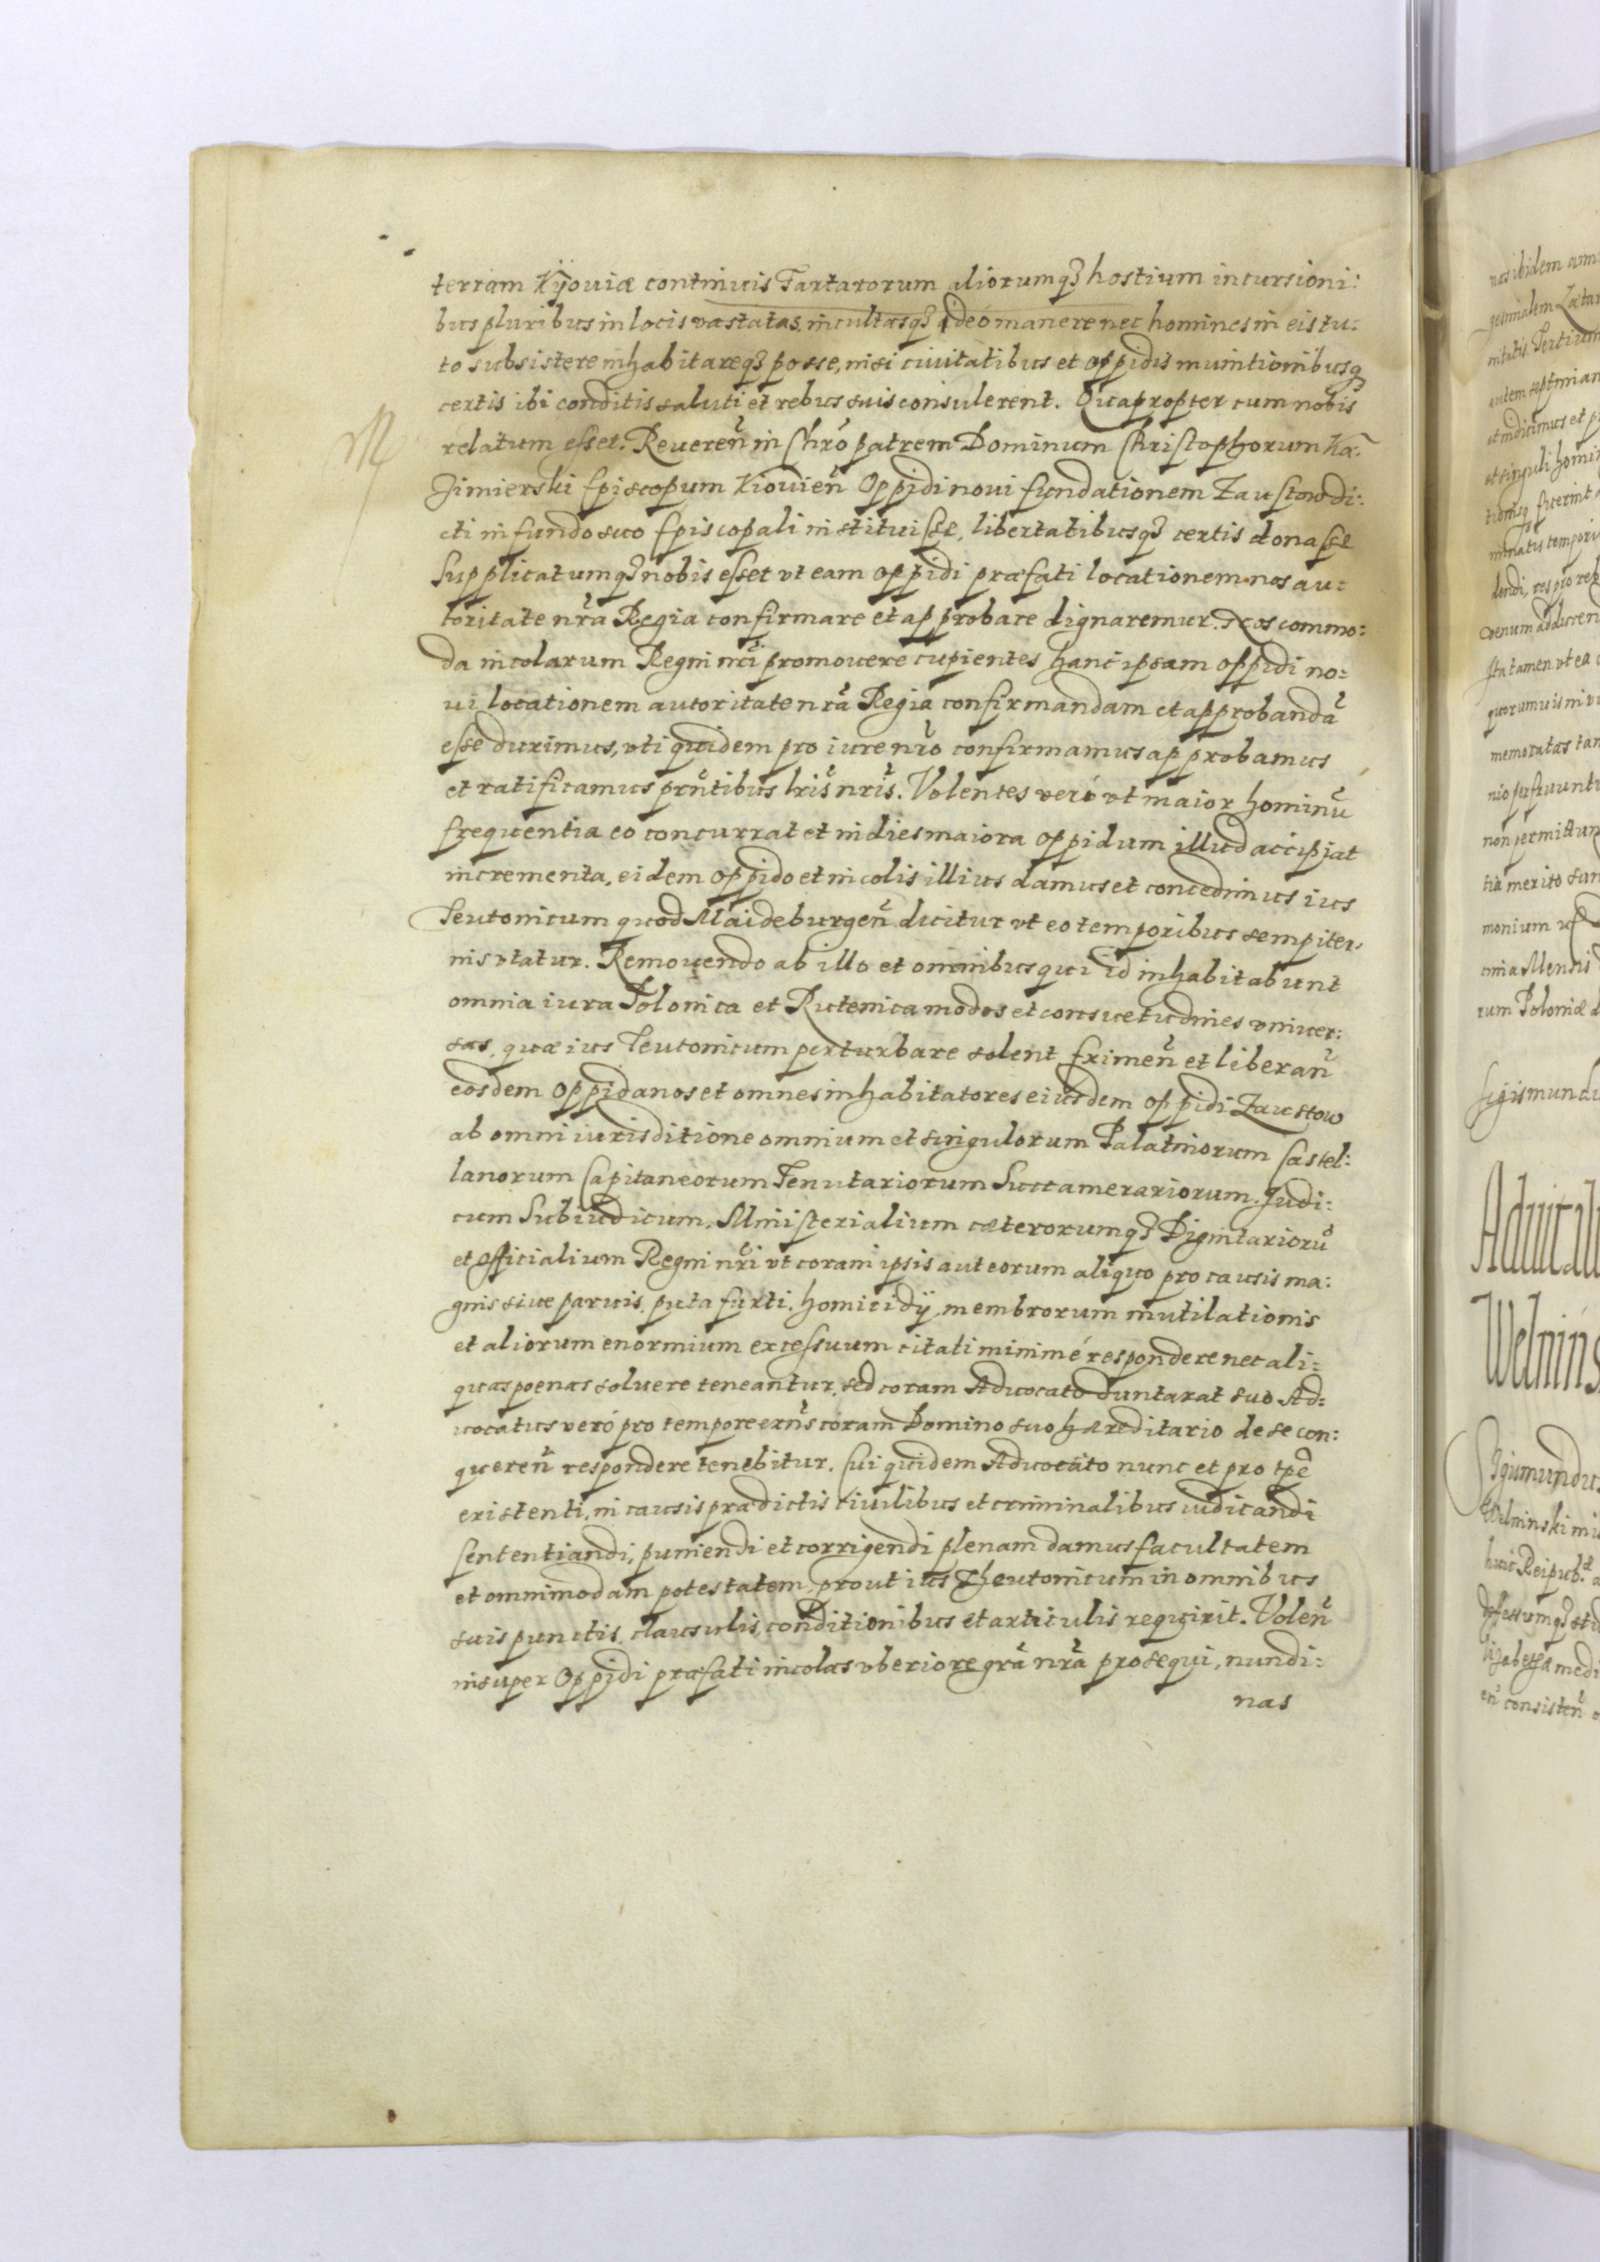 terram Kÿouiæ continuis Tartarorum aliorumqȝ hostium incursioni:
bus pluribus in locis vastatas, incultasqȝ ideó manere nec homines in eis tu:
to subsistere inhabitareqȝ posse, nisi ciuitatibus et oppidis munitionibusqȝ
certis ibi conditis saluti et rebus suis consulerent. Quapropter cum nobis
relatum esset. Reueren̄ in Chrō patrem Dominum Christophorum Ka:
zimierski Episcopum Kiouien̄ Oppidi noui fundationem Zaustow di:
cti in fundo suo Episcopali instituisse, libertatibusqȝ certis donasse
Supplicatumqȝ nobis esset vt eam oppidi præfati locationem nos au:
toritate nr̄a Regia confirmare et approbare dignaremur. Nos commo:
da incolarum Regni nr̄i promouere cupientes hanc ipsam oppidi no:
ui locationem autoritate nr̄a Regia confirmandam et approbandā
esse duximus, vti quidem pro iure nr̄o confirmamus approbamus
et ratificamus prn̄tibus lris̄ nris̄. Volentes veró vt maior hominū
frequentia eo concurrat et in dies maiora oppidum illud accipiat
incrementa, eidem oppido et incolis illius damus et concedimus ius
Teutonicum quod Maideburgen̄ dicitur vt eo temporibus sempiter:
nis vtatur. Remouendo ab illo et omnibus qui id inhabitabunt
omnia iura Polonica et Rutenica modos et consuetudines vniuer:
sas, quæ ius Teutonicum perturbare solent Eximen̄ et liberan̄
eosdem oppidanos et omnes inhabitatores eiusdem oppidi Zaustow
ab omni iurisditione omnium et singulorum Palatinorum Castel:
lanorum Capitaneorum Tenutariorum Succamerariorum. Iudi:
cum Subiudicum. Ministerialium cæterorumqȝ Dignitariorū
et officialium Regni nr̄i vt coram ipsis aut eorum aliquo pro causis ma:
gnis siue paruis, puta furti. homicidÿ membrorum mutilationis
et aliorum enormium excessuum citati minimé respondere nec ali:
quas poenas soluere teneantur, sed coram Aduocato duntaxat suo Ad:
uocatus veró pro tempore exn̄s coram Domino suo hæreditario de se con:
queren̄ respondere tenebitur. Cui quidem Aduocato nunc et pro tpē
existenti, in causis prædictis ciuilibus et criminalibus iudicandi
sententiandi, puniendi et corrigendi plenam damus facultatem
et omnimodam potestatem, prout ius Theutonicum in omnibus
suis punctis clausulis, conditionibus et articulis requirit. Volen̄
insuper Oppidi præfati incolas vberiore grā nr̄a prosequi, nundi:
nas
nas ibidem
mitatis Tertium
et indicimus et
et singuli
fuerint
minatis
venum
Ita tamen vt ea
quorumuis
memoratas
non permittun
tia merito
monium
rum Poloniæ
Sigismundu
Sigismundus
Welninski
huic Reipub.
en̄ consisten̄